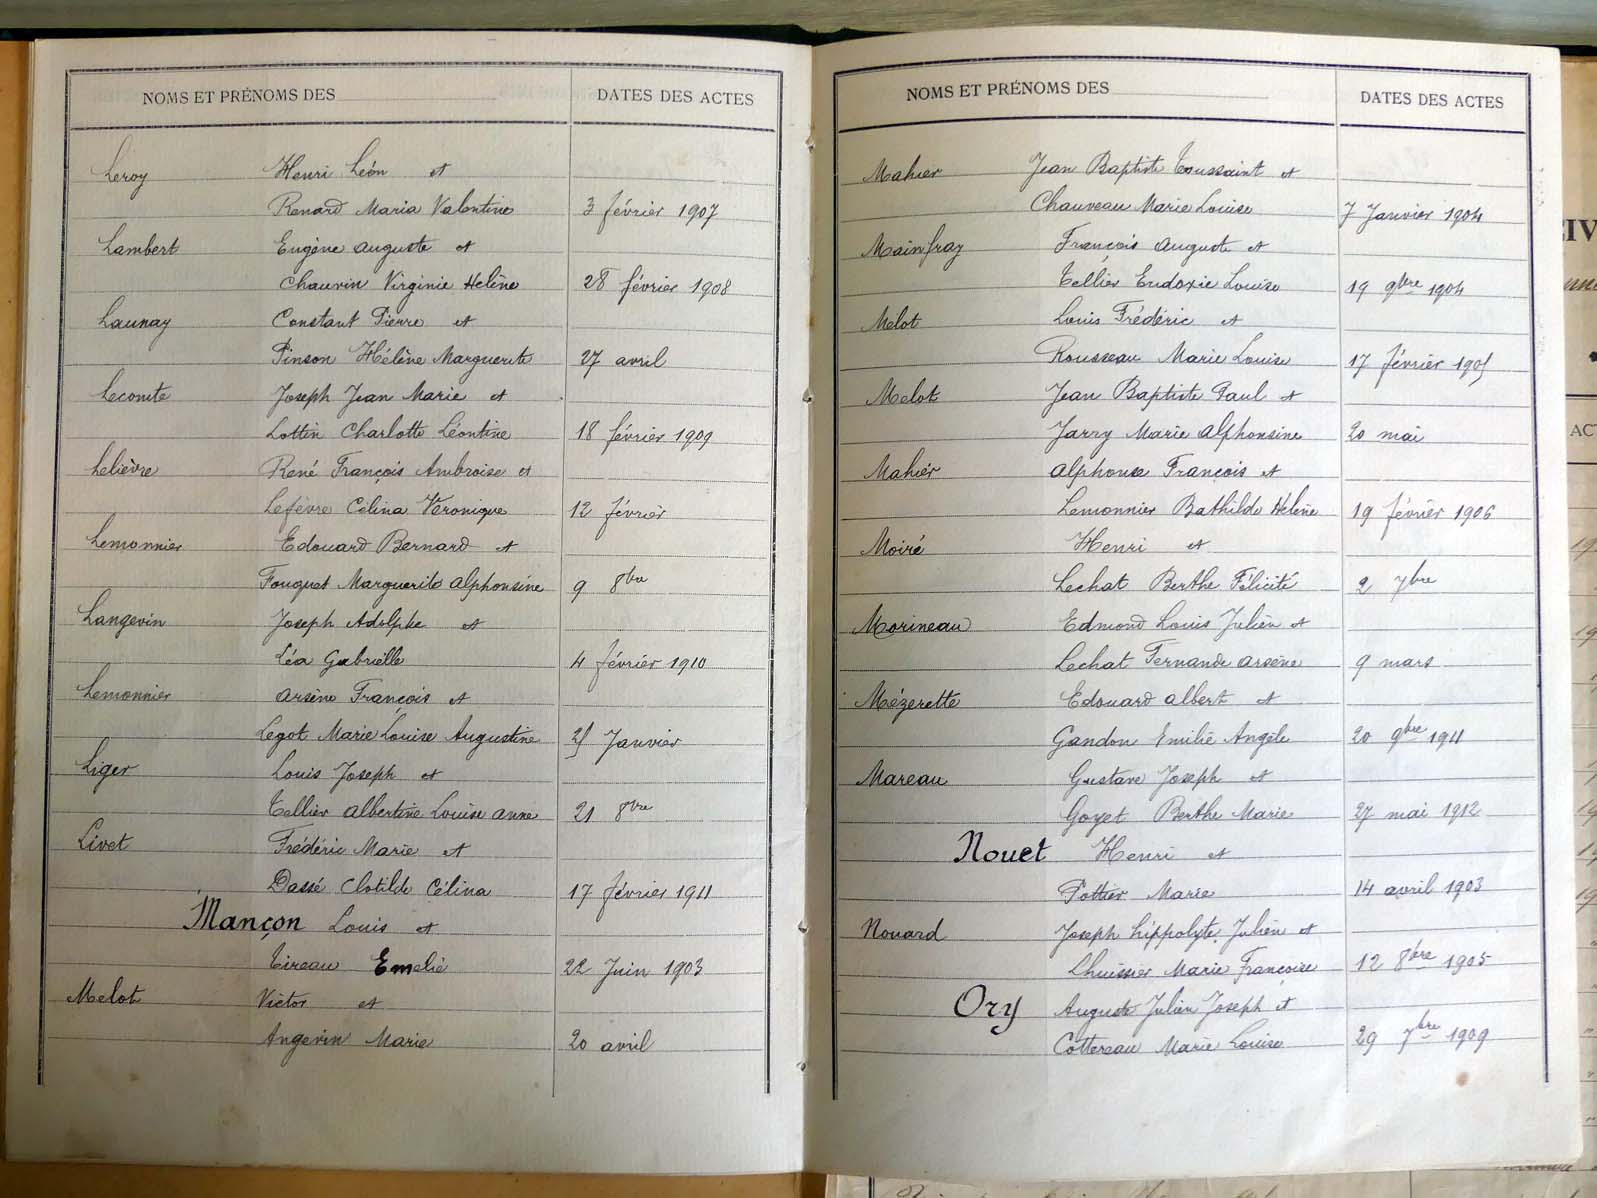 NOMS ET PRÉNOMS DES DATES DES ACTES
Leroy Henri Léon et
Renard Maria Valentine 3 février 1907
Lambert Eugène Auguste et
Chauvin Virginie Hélène 28 février 1908
Launay Constant Pierre et
Pinson Hélène Marguerite 27 avril
Lecomte Joseph Jean Marie et
Lottin Charlotte Léontine 18 février 1909
Lelièvre René François Ambroise et
Lefèvre Célina Véronique 12 février
Lemonnier Edouard Bernard et
Fouquet Marguerite Alphonsine 9 8bre
Langevin Joseph Adolphe et
Léa Gabrielle 4 février 1910
Lemonnier Arsène François et
Legot Marie Louise Augustine 25 Janvier
Liger Louis Joseph et
Tellier Albertine Louise Anne 21 8bre
Livet Frédéric Marie et
Dassé Clotilde Célina 17 février 1911
Mançon Louis et
Tireau Emélie 22 Juin 1903
Melot Victor et
Angevin Marie 20 avril
NOMS ET PRÉNOMS DES DATES DES ACTES
Mahier Jean Baptiste Toussaint et
Chauveau Marie Louise 7 Janvier 1904
Mainfray François Auguste et
Tellier Eudoxie Louise 19 9bre 1904
Melot Louis Frédéric et
Rousseau Marie Louise 17 février 1905
Melot Jean Baptiste Paul et
Jarry Marie Alphonsine 20 mai
Mahier Alphonse François et
Lemonnier Bathilde Hélène 19 février 1906
Moiré Henri et
Lechat Berthe Félicité 2 7bre
Morineau Edmond Louis Julien et
Lechat Fernande Arsène 9 mars
Mézerette Edouard Albert et
Gandon Emilie Angèle 20 9bre 1911
Mareau Gustave Joseph et
Goyet Berthe Marie 27 mai 1912
Nouet Henri et
Pottier Marie 14 avril 1903
Nouard Joseph Hippolyte Julien et
Lhuissier Marie Françoise 12 8bre 1905
Ory Auguste Julien Joseph et
Cottereau Marie Louise 29 7bre 1909